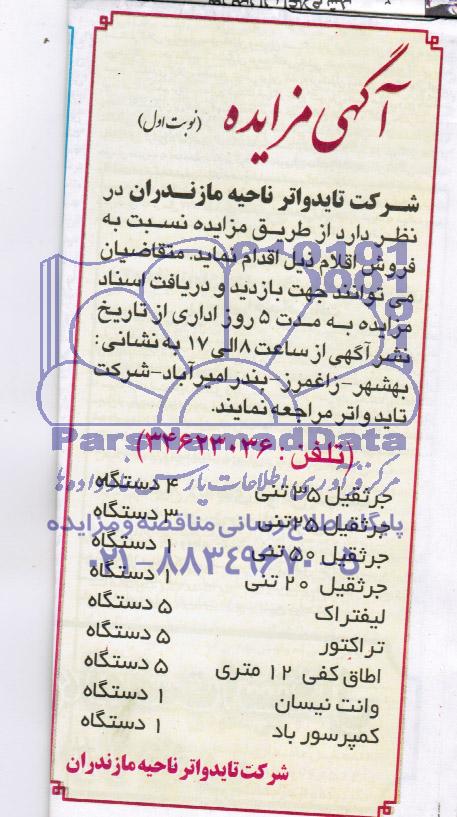 آگهی مزایده (نوبت اول)
شرکت تایدواتر ناحیه مازندران در
نظر دارد از طریق مزایده نسبت به
فروش اقلام ذیل اقدام نماید. متقاضیان
می توانند جهت بازدید و دریافت اسناد
مزایده به مدت ۵ روز اداری از تاریخ
نشر آگهی از ساعت ۸ الی ۱۷ به نشانی:
بهشهر-زاغمرز-بندر امیرآباد-شرکت
تایدواتر مراجعه نمایند.
ParsNamadData
(تلفن: ۳۴۶۲۳۰۳۶)
مرکز فرآوری اطلاعات پارس نماد داده ها
جرثقیل ۳۵ تنی ۴ دستگاه
جرثقیل ۲۵ تنی ۳ دستگاه
پایگاه اطلاع رسانی مناقصه و مزایده
جرثقیل ۵۰ تنی ۱ دستگاه
۰۲۱-۸۸۳۴۹۶۷۰-۵
جرثقیل ۲۰ تنی ۱ دستگاه
لیفتراک ۵ دستگاه
تراکتور ۵ دستگاه
اطاق کفی ۱۲ متری ۵ دستگاه
وانت نیسان ۱ دستگاه
کمپرسور باد ۱ دستگاه
شرکت تایدواتر ناحیه مازندران